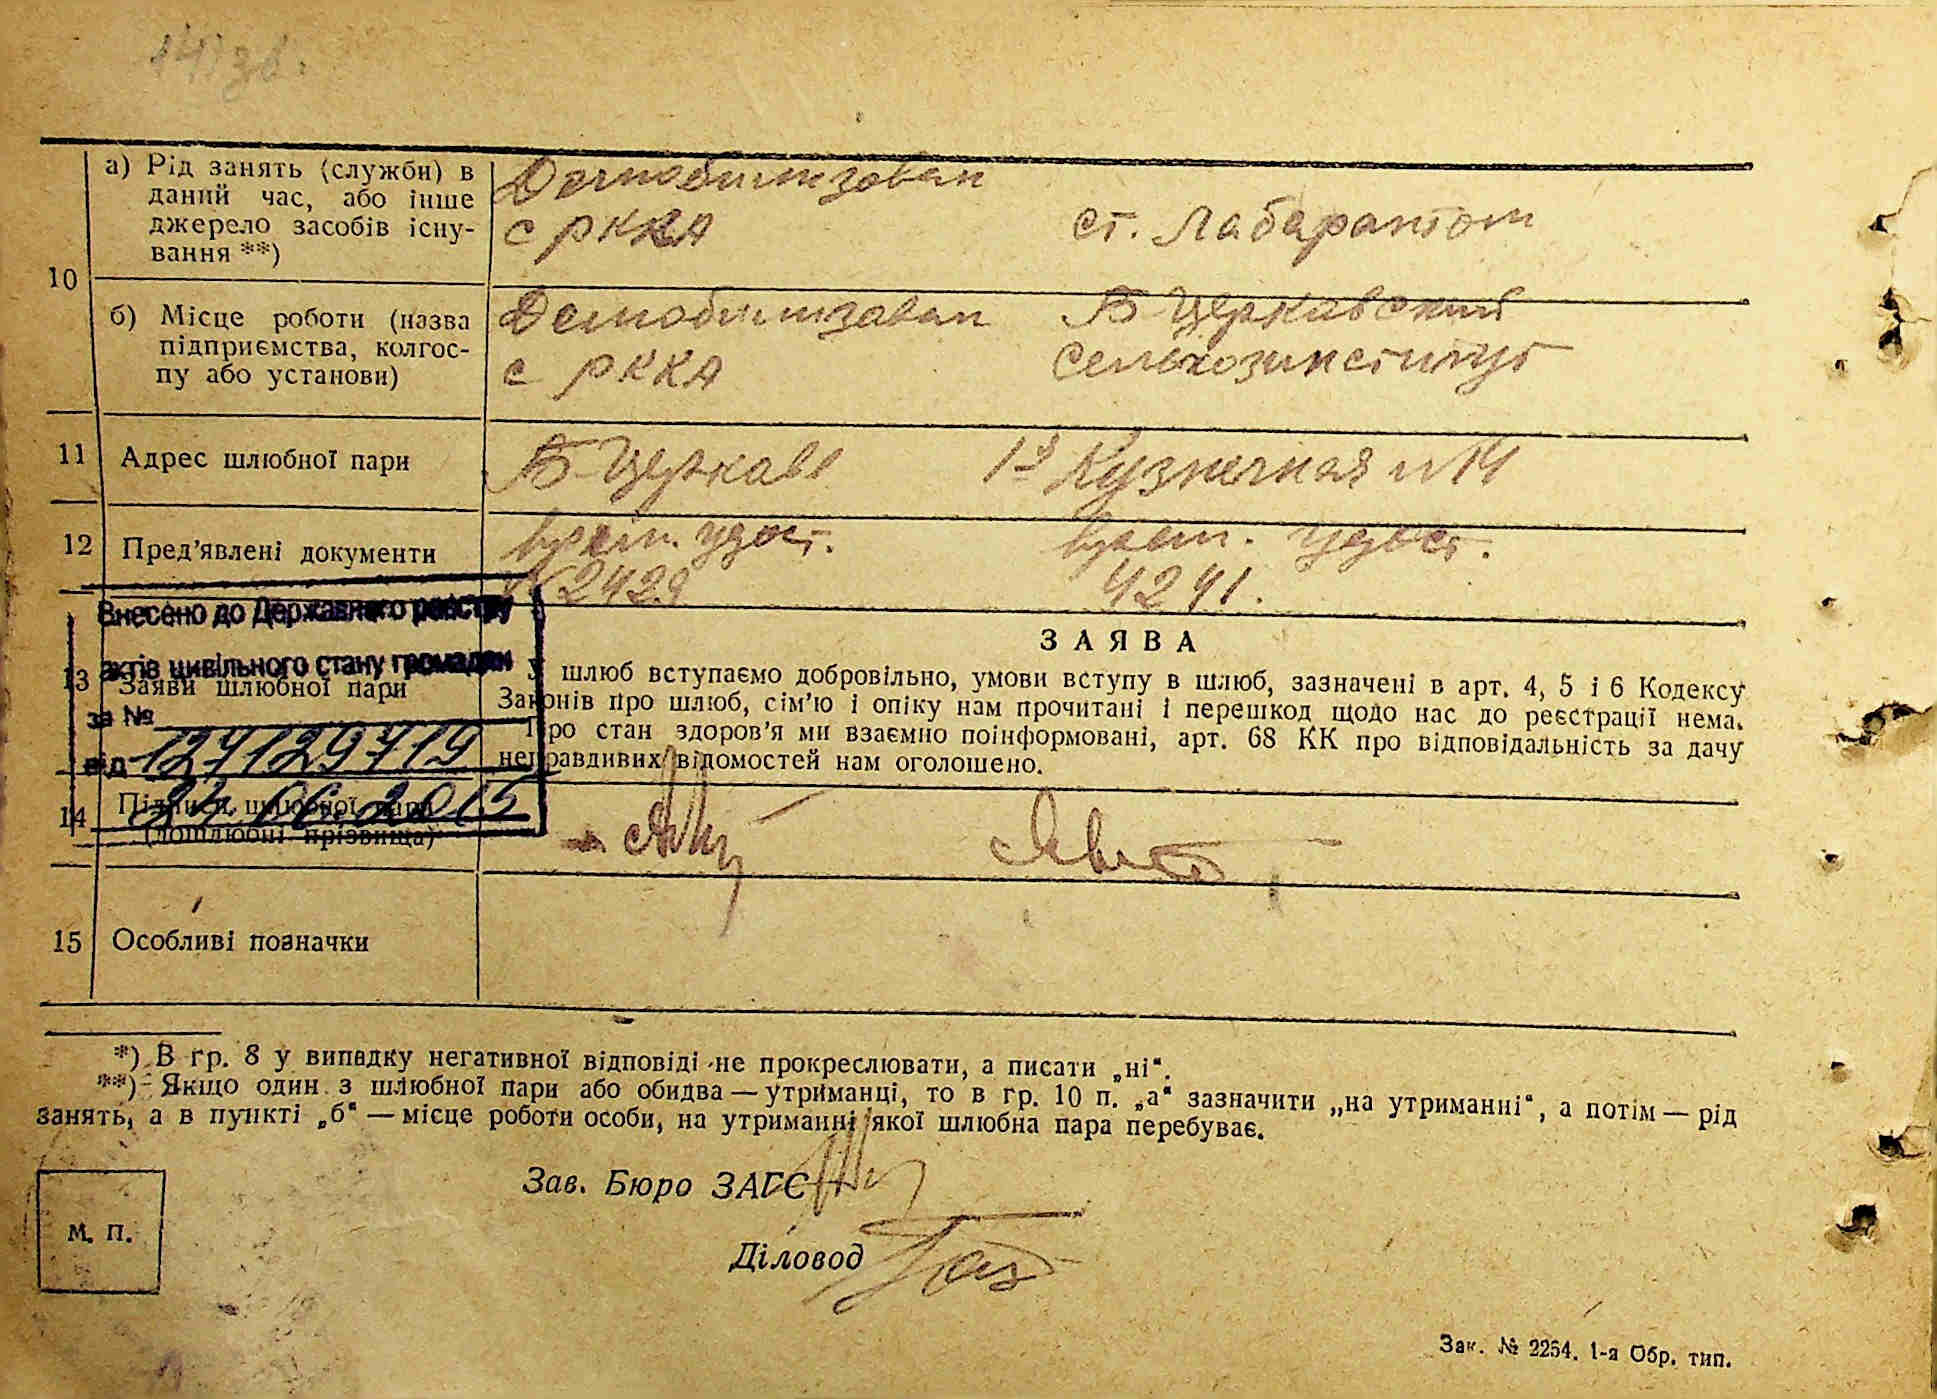 141зв.
10
а) Рід занять (служби) в
даний час, або інше
джерело засобів існу-
вання **)
Демобилизован
с РККА
ст. Лабарантом
б) Місце роботи (назва
підприємства, колгос-
пу або установи)
Демобилизован
с РККА
Б-Церкавский
сельхозинститут
11 Адрес шлюбної пари
Б-Церкавь 1я Кузнечная №14
12 Пред'явлені документи
врем. удост.
№ 2429
врем. удост.
4241.
Внесено до Державного реєстру
актів цивільного стану громадян
за №
127129719
від 24.06.2015
13 Заяви шлюбної пари
ЗАЯВА
У шлюб вступаємо добровільно, умови вступу в шлюб, зазначені в арт. 4, 5 і 6 Кодексу
Законів про шлюб, сім'ю і опіку нам прочитані і перешкод щодо нас до реєстрації нема.
Про стан здоров'я ми взаємно поінформовані, арт. 68 КК про відповідальність за дачу
неправдивих відомостей нам оголошено.
14 Підписи шлюбної пари
(дошлюбні прізвища)
15 Особливі позначки
*) В гр. 8 у випадку негативної відповіді не прокреслювати, а писати „ні“.
**) Якщо один з шлюбної пари або обидва — утриманці, то в гр. 10 п. „а“ зазначити „на утриманні“, а потім — рід
занять, а в пункті „б“ — місце роботи особи, на утриманні якої шлюбна пара перебуває.
Зав. Бюро ЗАГС
М. П.
Діловод
Зак. № 2254. 1-а Обр. тип.